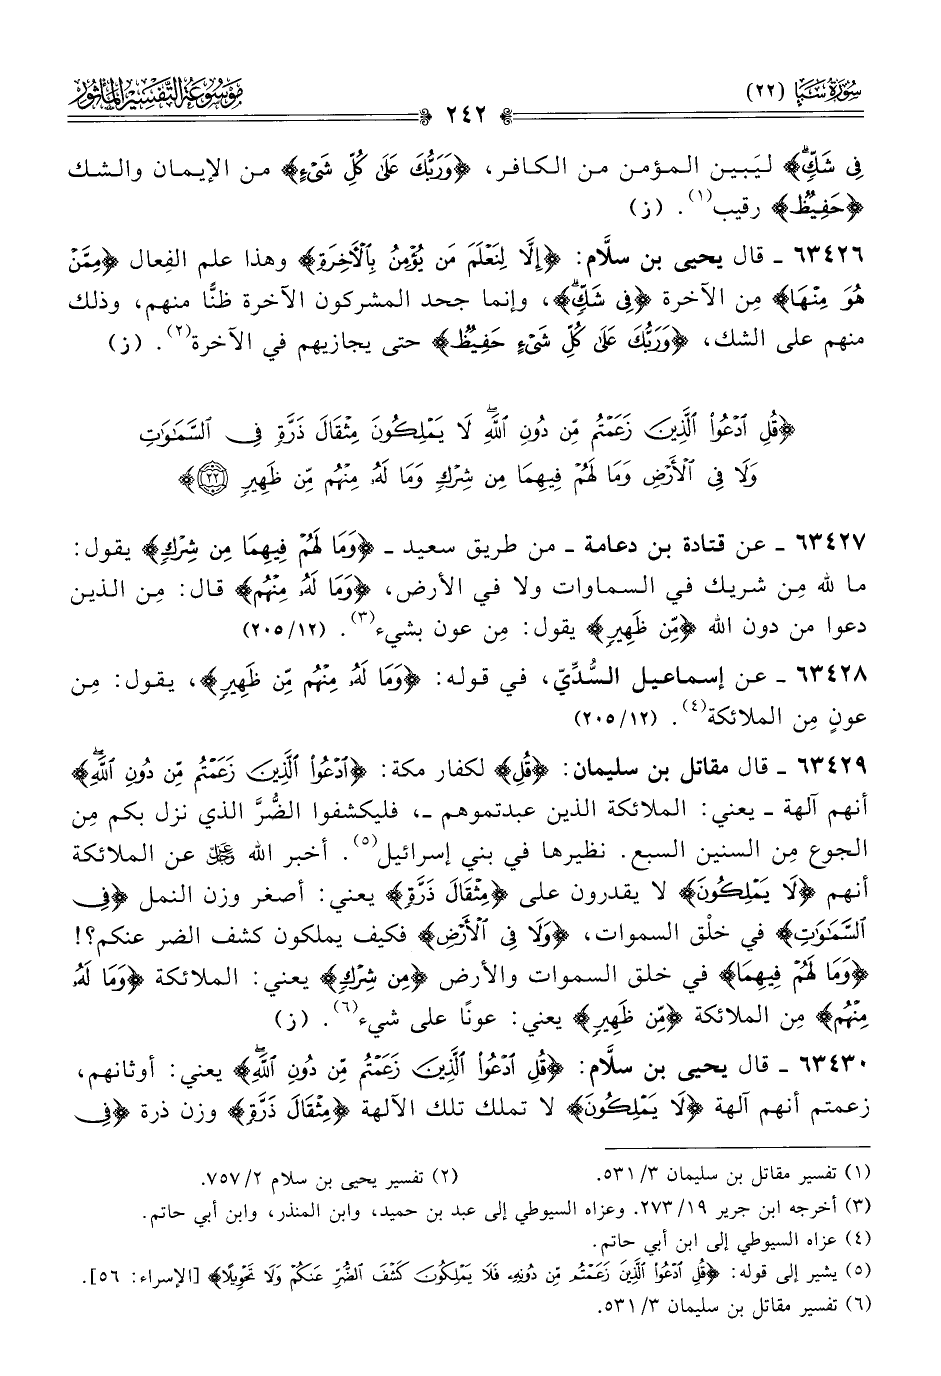 سُورَةُ سَبَإٍ (٢٢)
٢٤٢
مَوْسُوعَةُ التَّفْسِيرِ المَأْثُورِ
فِي شَكٍّۗ﴾ ليَبين المؤمن من الكافر، ﴿وَرَبُّكَ عَلَىٰ كُلِّ شَىْءٍ﴾ من الإيمان والشك
﴿حَفِيظٌ﴾ رقيب(١). (ز)
٦٣٤٢٦ ـ قال يحيى بن سلَّام: ﴿إِلَّا لِنَعْلَمَ مَن يُؤْمِنُ بِٱلْأَخِرَةِ﴾ وهذا علم الفِعال ﴿مِمَّنْ
هُوَ مِنْهَا﴾ مِن الآخرة ﴿فِي شَكٍّۗ﴾، وإنما جحد المشركون الآخرة ظنًّا منهم، وذلك
منهم على الشك، ﴿وَرَبُّكَ عَلَىٰ كُلِّ شَىْءٍ حَفِيظٌ﴾ حتى يجازيهم في الآخرة(٢). (ز)
﴿قُلِ ٱدْعُوا۟ ٱلَّذِينَ زَعَمْتُم مِّن دُونِ ٱللَّهِۖ لَا يَمْلِكُونَ مِثْقَالَ ذَرَّةٍ فِى ٱلسَّمَٰوَٰتِ
وَلَا فِى ٱلْأَرْضِ وَمَا لَهُمْ فِيهِمَا مِن شِرْكٍ وَمَا لَهُۥ مِنْهُم مِّن ظَهِيرٍ ٢٢﴾
٦٣٤٢٧ ـ عن قتادة بن دعامة ـ من طريق سعيد ـ ﴿وَمَا لَهُمْ فِيهِمَا مِن شِرْكٍ﴾ يقول:
ما لله مِن شريك في السماوات ولا في الأرض، ﴿وَمَا لَهُۥ مِنْهُم﴾ قال: مِن الذين
دعوا من دون الله ﴿مِّن ظَهِيرٍ﴾ يقول: مِن عون بشيء(٣). (٢٠٥/١٢)
٦٣٤٢٨ ـ عن إسماعيل السُّدِّيّ، في قوله: ﴿وَمَا لَهُۥ مِنْهُم مِّن ظَهِيرٍ﴾، يقول: مِن
عونٍ مِن الملائكة(٤). (٢٠٥/١٢)
٦٣٤٢٩ ـ قال مقاتل بن سليمان: ﴿قُلِ﴾ لكفار مكة: ﴿ٱدْعُوا۟ ٱلَّذِينَ زَعَمْتُم مِّن دُونِ ٱللَّهِۖ﴾
أنهم آلهة ـ يعني: الملائكة الذين عبدتموهم ـ، فليكشفوا الضُّرَّ الذي نزل بكم مِن
الجوع مِن السنين السبع. نظيرها في بني إسرائيل(٥). أخبر الله ﷻ عن الملائكة
أنهم ﴿لَا يَمْلِكُونَ﴾ لا يقدرون على ﴿مِثْقَالَ ذَرَّةٍ﴾ يعني: أصغر وزن النمل ﴿فِى
ٱلسَّمَٰوَٰتِ﴾ في خلْق السموات، ﴿وَلَا فِى ٱلْأَرْضِ﴾ فكيف يملكون كشف الضر عنكم؟!
﴿وَمَا لَهُمْ فِيهِمَا﴾ في خلق السموات والأرض ﴿مِن شِرْكٍ﴾ يعني: الملائكة ﴿وَمَا لَهُۥ
مِنْهُم﴾ مِن الملائكة ﴿مِّن ظَهِيرٍ﴾ يعني: عونًا على شيء(٦). (ز)
٦٣٤٣٠ ـ قال يحيى بن سلَّام: ﴿قُلِ ٱدْعُوا۟ ٱلَّذِينَ زَعَمْتُم مِّن دُونِ ٱللَّهِۖ﴾ يعني: أوثانهم،
زعمتم أنهم آلهة ﴿لَا يَمْلِكُونَ﴾ لا تملك تلك الآلهة ﴿مِثْقَالَ ذَرَّةٍ﴾ وزن ذرة ﴿فِى
(١) تفسير مقاتل بن سليمان ٥٣١/٣. (٢) تفسير يحيى بن سلام ٧٥٧/٢.
(٣) أخرجه ابن جرير ٢٧٣/١٩. وعزاه السيوطي إلى عبد بن حميد، وابن المنذر، وابن أبي حاتم.
(٤) عزاه السيوطي إلى ابن أبي حاتم.
(٥) يشير إلى قوله: ﴿قُلِ ٱدْعُوا۟ ٱلَّذِينَ زَعَمْتُم مِّن دُونِهِۦ فَلَا يَمْلِكُونَ كَشْفَ ٱلضُّرِّ عَنكُمْ وَلَا تَحْوِيلًا﴾ [الإسراء: ٥٦].
(٦) تفسير مقاتل بن سليمان ٥٣١/٣.